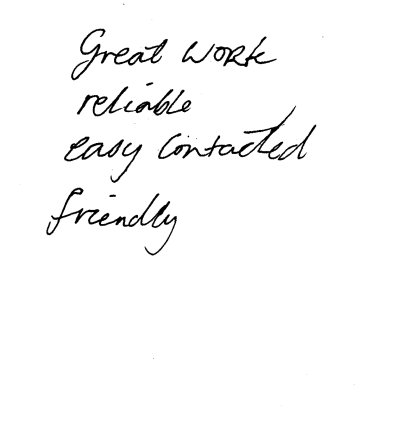 Great work
reliable
easy contacted
friendly